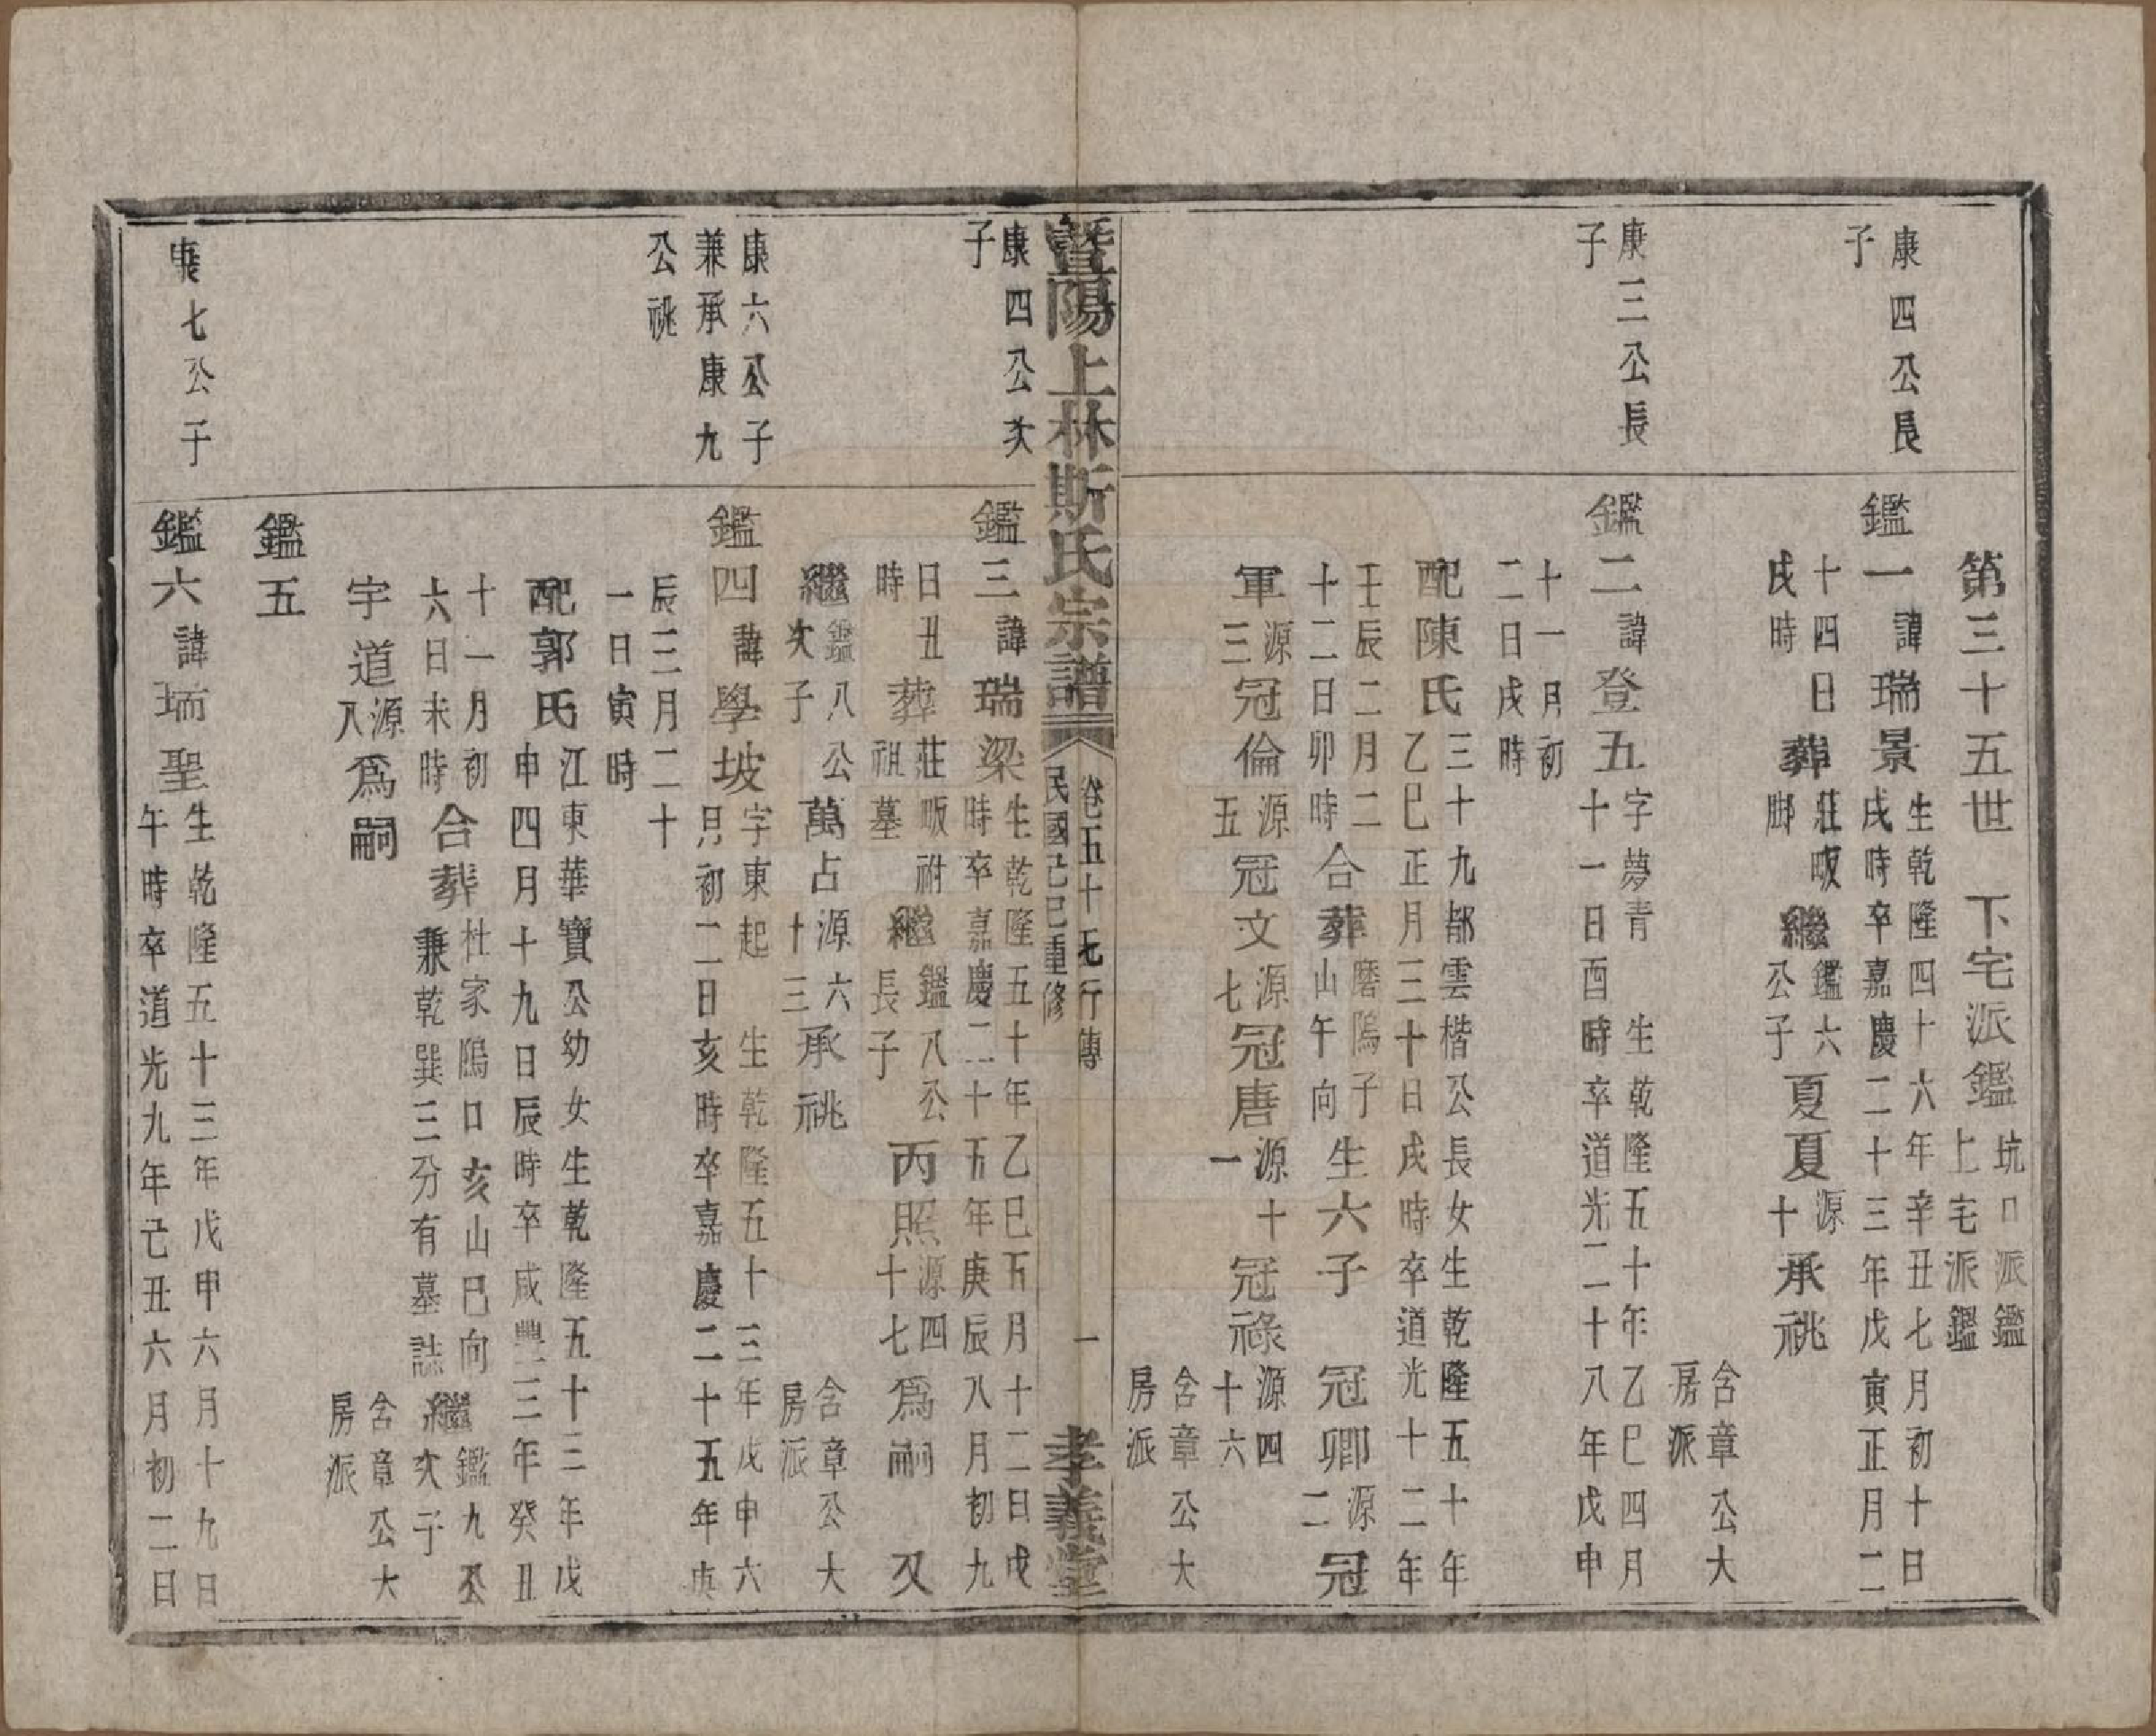 第三十五世　下宅派鑑　坑口派鑑
上宅派鑑
康四公長
子
鑑一諱瑞景　生乾隆四十六年辛丑七月初十日
戌時卒嘉慶二十三年戊寅正月二
十四日
戌時
葬　莊畈
脚
繼　鑑六
公子
夏夏　源
十
承祧
含章公大
房派
康三公長
子
鑑二諱登五　字夢青　生乾隆五十年乙巳四月
十一日酉時卒道光二十八年戊申
十一月初
二日戌時
配陳氏　三十九都雲楷公長女生乾隆五十年
乙巳正月三十日戌時卒道光十二年
壬辰二月二
十二日卯時
合葬　磨隖子
山午向
生六子　冠卿　源
二
冠
軍　源
三
冠倫　源
五
冠文　源
七
冠唐　源十
一
冠祿　源四
十六
含章公大
房派
暨陽上林斯氏宗譜
卷五十七行傳
民國己巳重修
一
孝義堂
康四公次
子
鑑三諱瑞梁　生乾隆五十年乙巳五月十二日戌
時卒嘉慶二十五年庚辰八月初九
日丑
時
葬　莊畈祔
祖墓
繼　鑑八公
長子
丙照　源四
十七
爲嗣　又
繼　鑑八公
次子
萬占　源六
十三
承祧
含章公大
房派
康六公子
兼承康九
公祧
鑑四諱學坡　字東起　生乾隆五十三年戊申六
月初二日亥時卒嘉慶二十五年庚
辰三月二十
一日寅時
配郭氏　江東華寶公幼女生乾隆五十三年戊
申四月十九日辰時卒咸豐三年癸丑
十一月初
六日未時
合葬　杜家隖口亥山巳向
兼乾巽三分有墓誌
繼　鑑九公
次子
宇道　源
八
爲嗣
含章公大
房派
鑑五
康七公子
鑑六諱瑞聖　生乾隆五十三年戊申六月十九日
午時卒道光九年己丑六月初二日